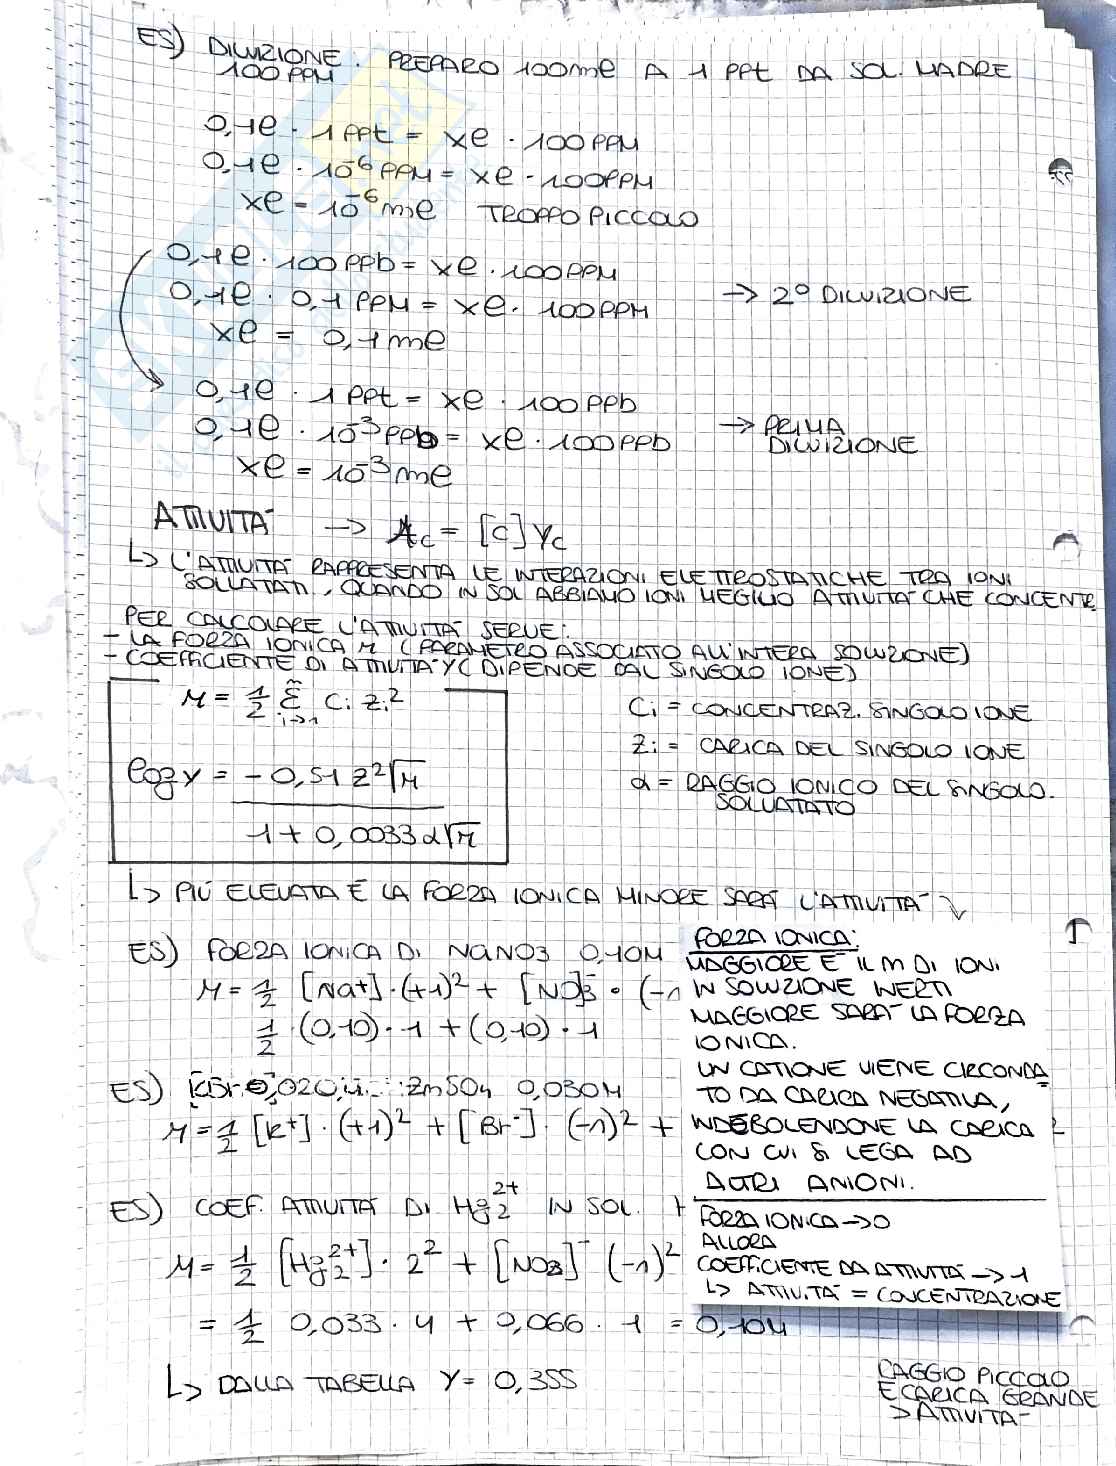 ES) DILUIZIONE. PREPARO 100ml A 1 ppt DA SOL. MADRE
100 PPM
0,1l · 1 ppt = xl · 100 PPM
0,1l · 10⁻⁶ PPM = xl · 100PPM
xl = 10⁻⁶ ml TROPPO PICCOLO
0,1l · 100 ppb = xl · 100PPM
0,1l · 0,1 PPM = xl · 100PPM → 2° DILUIZIONE
xl = 0,1 ml
0,1l · 1 ppt = xl · 100 ppb
0,1l · 10⁻³ ppb = xl · 100 ppb → PRIMA
DILUIZIONE
xl = 10⁻³ ml
ATTIVITÀ → Ac = [c] γc
↳ L'ATTIVITÀ RAPPRESENTA LE INTERAZIONI ELETTROSTATICHE TRA IONI
SOLVATATI, QUANDO IN SOL ABBIAMO IONI MEGLIO ATTIVITÀ CHE CONCENTR.
PER CALCOLARE L'ATTIVITÀ SERVE:
- LA FORZA IONICA μ (PARAMETRO ASSOCIATO ALL'INTERA SOLUZIONE)
- COEFFICIENTE DI ATTIVITÀ γ (DIPENDE DAL SINGOLO IONE)
μ = 1/2 Σ ci zi²
n
i→1
Ci = CONCENTRAZ. SINGOLO IONE
Zi = CARICA DEL SINGOLO IONE
log γ = - 0,51 z² √μ
1 + 0,0033 α √μ
α = RAGGIO IONICO DEL SINGOLO.
SOLVATATO
↳ PIÙ ELEVATA È LA FORZA IONICA MINORE SARÀ L'ATTIVITÀ ↘
ES) FORZA IONICA DI NaNO3 0,10M
μ = 1/2 [Na+] · (+1)² + [NO3⁻] · (-1
1/2 · (0,10) · 1 + (0,10) · 1
ES) KBr 0,020M ZnSO4 0,030M
μ = 1/2 [K+] · (+1)² + [Br⁻] · (-1)² + 2
ES) COEF. ATTIVITÀ DI Hg2²⁺ IN SOL.
μ = 1/2 [Hg2²⁺] · 2² + [NO3]⁻ (-1)²
= 1/2 0,033 · 4 + 0,066 · 1 = 0,10M
↳ DALLA TABELLA γ = 0,355
FORZA IONICA:
MAGGIORE È IL N DI IONI
IN SOLUZIONE INERTI
MAGGIORE SARÀ LA FORZA
IONICA.
UN CATIONE VIENE CIRCONDA
TO DA CARICA NEGATIVA,
INDEBOLENDONE LA CARICA
CON CUI SI LEGA AD
ALTRI ANIONI.
FORZA IONICA → 0
ALLORA
COEFFICIENTE DA ATTIVITÀ → 1
↳ ATTIVITÀ = CONCENTRAZIONE
RAGGIO PICCOLO
E CARICA GRANDE
> ATTIVITÀ